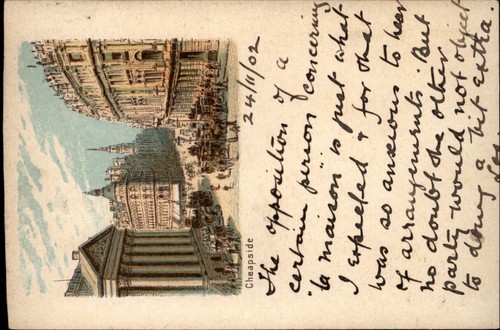 Cheapside
24/11/02
The opposition of a
certain "person" concerning
"la maison" is just what
I expected & for that
was so anxious to hear
of arrangements. But
no doubt the other
party would not object
to doing a bit extra.